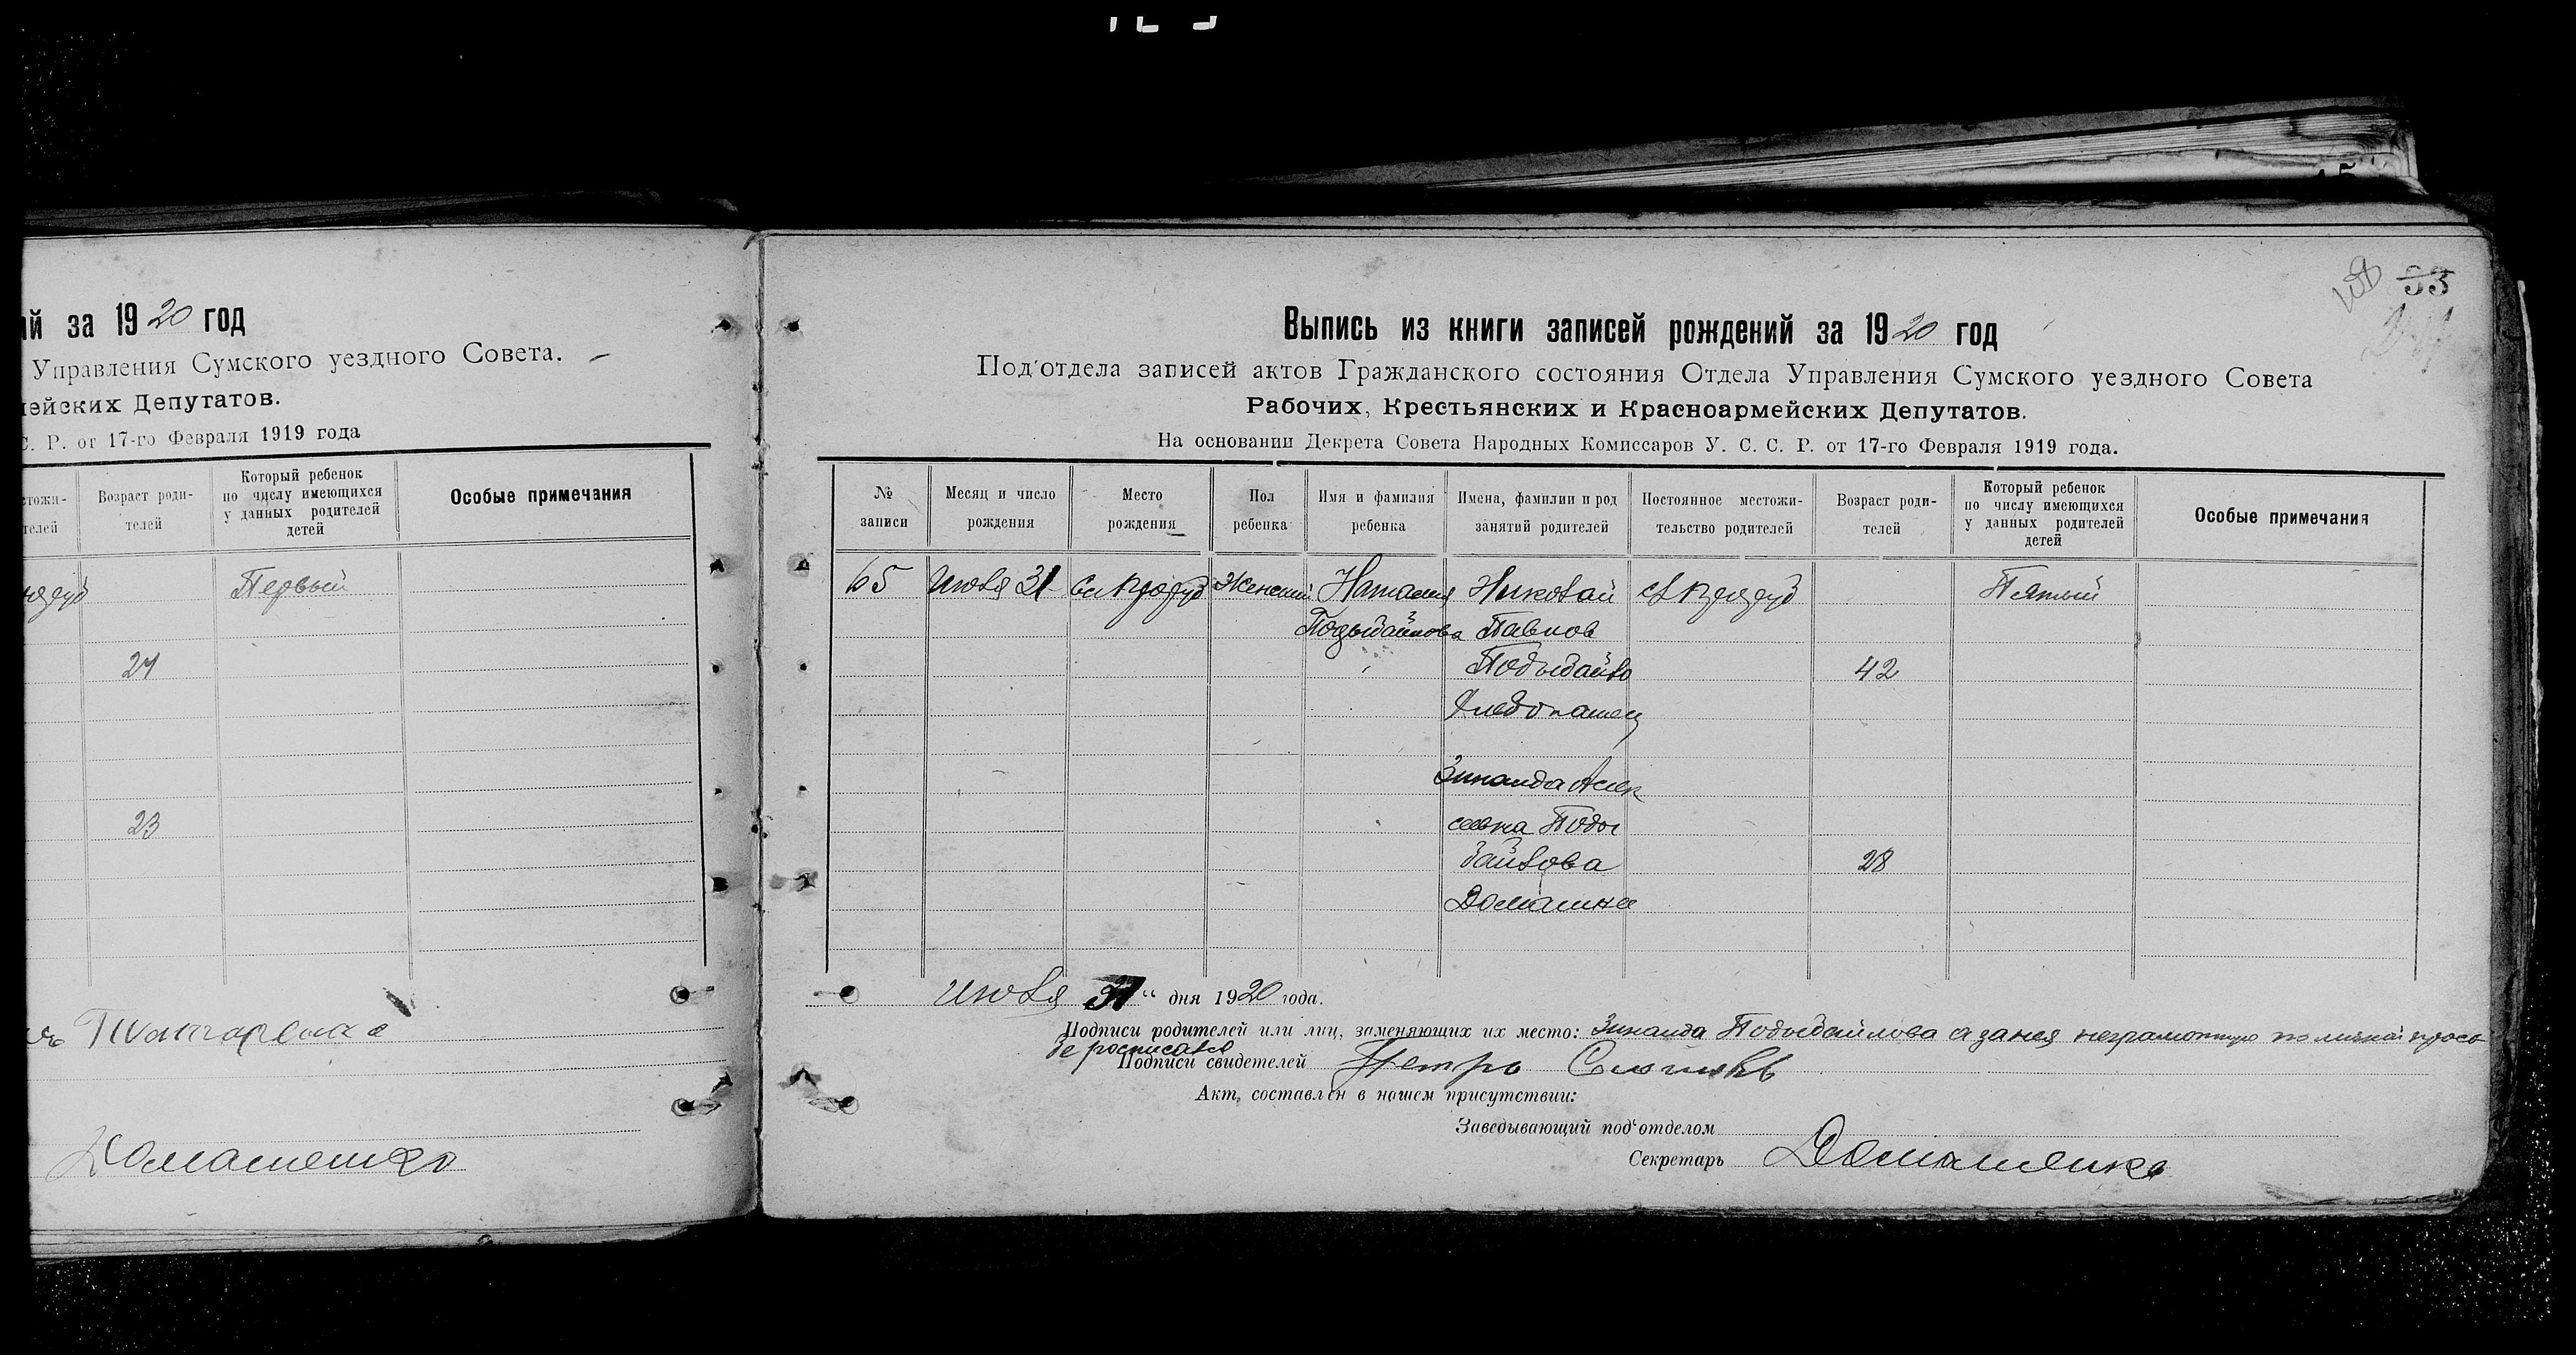 ий за 1920 год
Управления Сумского уездного Совета.
мейских Депутатов.
С. Р. от 17-го Февраля 1919 года
стожи-
телей
Возраст роди-
телей
Который ребенок
по числу имеющихся
у данных родителей
детей
Особые примечания
Первый
24
23
Домашенко
53
Выпись из книги записей рождений за 1920 год
Под'отдела записей актов Гражданского состояния Отдела Управления Сумского уездного Совета
Рабочих, Крестьянских и Красноармейских Депутатов.
На основании Декрета Совета Народных Комиссаров У. С. С. Р. от 17-го Февраля 1919 года.
№
записи
Месяц и число
рождения
Место
рождения
Пол
ребенка
Имя и фамилия
ребенка
Имена, фамилии и род
занятий родителей
Постоянное местожи-
тельство родителей
Возраст роди-
телей
Который ребенок
по числу имеющихся
у данных родителей
детей
Особые примечания
65 Июля 31 Женский Наталия Николай Пятый
Павлов
42
Хлебопашец
Зинаида Алек
сеевна Поды
байлова 28
Домашнее
Июля 31 " дня 1920 года.
Подписи родителей или лиц, заменяющих их место: Зинаида Подыбайлова а за нея неграмотную по личной прось
бе росписался
Подписи свидетелей Петро
Акт, составлен в нашем присутствии:
Заведывающий под'отделом
Секретарь Домашенко